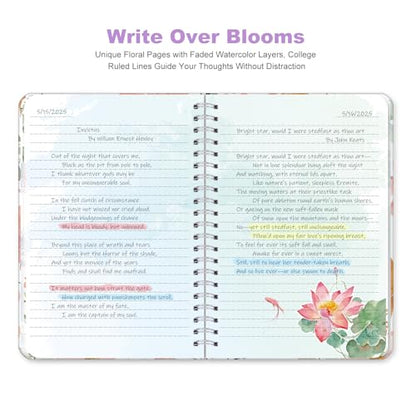 Write Over Blooms
Unique Floral Pages with Faded Watercolor Layers, College
Ruled Lines Guide Your Thoughts Without Distraction
5/15/2025
Invictus
By William Ernest Henley
Out of the night that covers me,
Black as the pit from pole to pole,
I thank whatever gods may be
For my unconquerable soul.
In the fell clutch of circumstance
I have not winced nor cried aloud.
Under the bludgeonings of chance
My head is bloody, but unbowed.
Beyond this place of wrath and tears
Looms but the Horror of the shade,
And yet the menace of the years
Finds and shall find me unafraid.
It matters not how strait the gate,
How charged with punishments the scroll,
I am the master of my fate,
I am the captain of my soul.
5/16/2025
Bright star, would I were stedfast as thou art
By John Keats
Bright star, would I were stedfast as thou art—
Not in lone splendour hung aloft the night
And watching, with eternal lids apart,
Like nature's patient, sleepless Eremite,
The moving waters at their priestlike task
Of pure ablution round earth's human shores,
Or gazing on the new soft-fallen mask
Of snow upon the mountains and the moors—
No—yet still stedfast, still unchangeable,
Pillow'd upon my fair love's ripening breast,
To feel for ever its soft fall and swell,
Awake for ever in a sweet unrest,
Still, still to hear her tender-taken breath,
And so live ever—or else swoon to death.